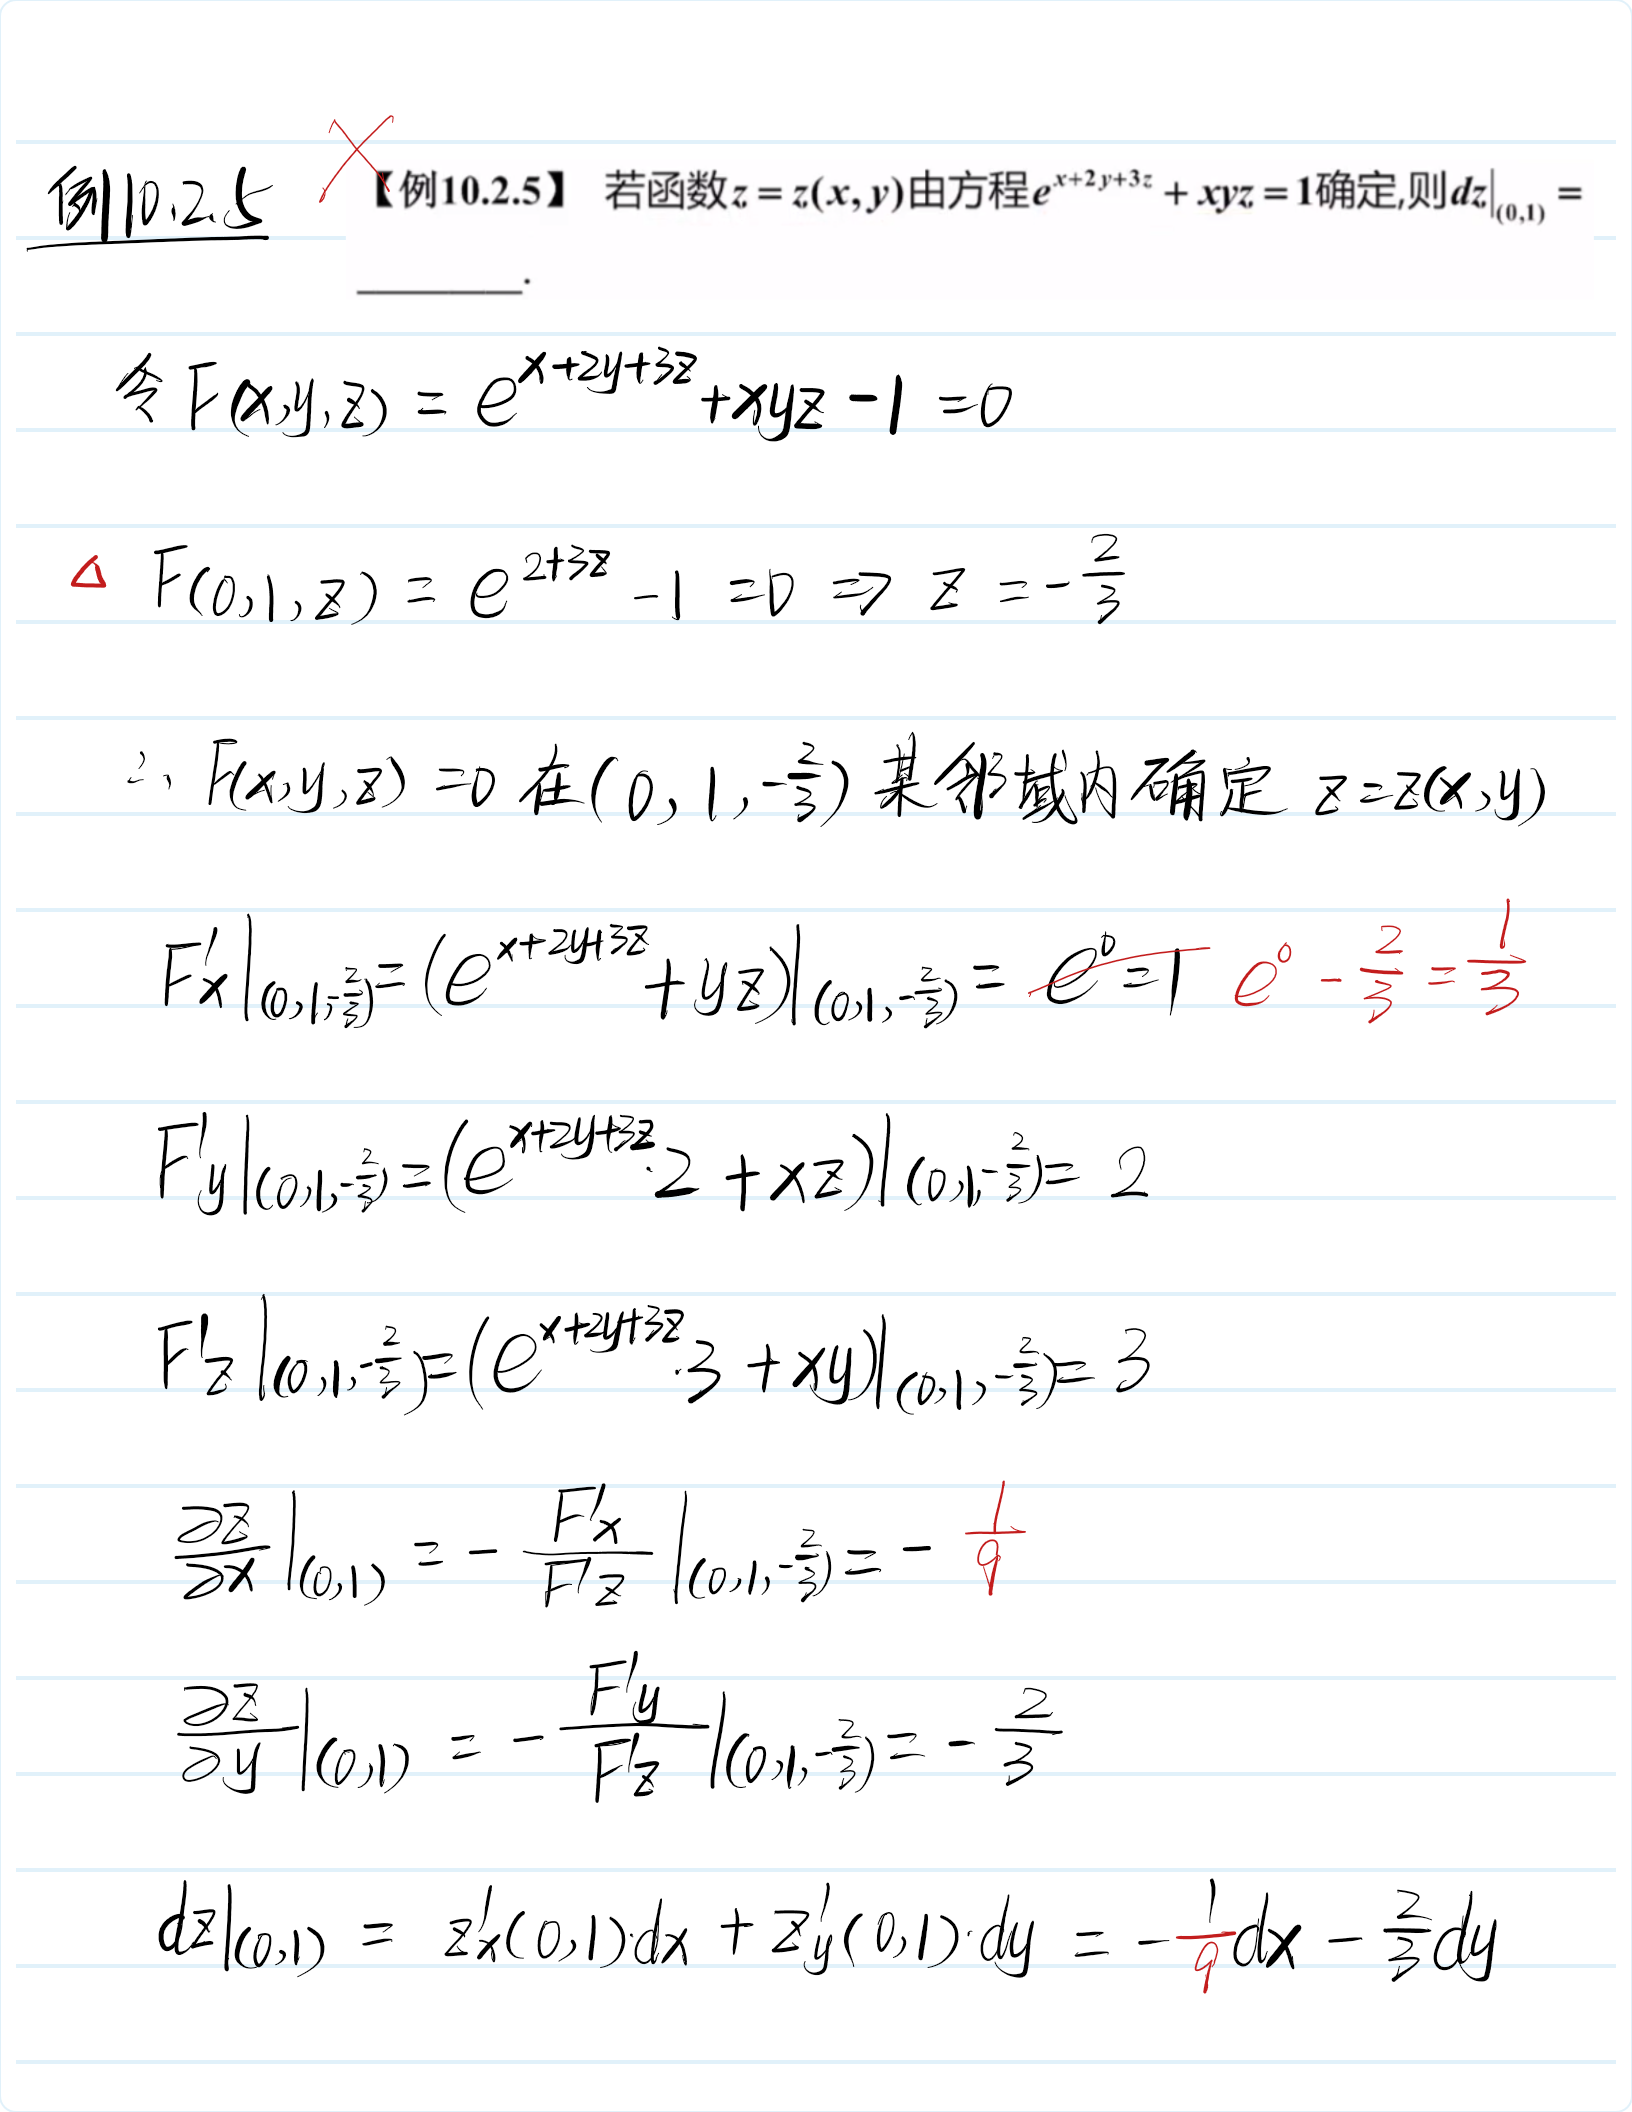 例10.2.5
【例10.2.5】 若函数z = z(x, y)由方程e^{x+2y+3z} + xyz = 1确定,则dz|_{(0,1)} =
________.
令 F(x,y,z) = e^{x+2y+3z} + xyz - 1 = 0
△ F(0,1,z) = e^{2+3z} - 1 = 0 => z = -\frac{2}{3}
∴ F(x,y,z) = 0 在(0, 1, -\frac{2}{3}) 某邻域内确定 z = z(x,y)
F'x|_{(0,1,-\frac{2}{3})} = (e^{x+2y+3z} + yz)|_{(0,1,-\frac{2}{3})} = e^0 = 1 e^0 - \frac{2}{3} = \frac{1}{3}
F'y|_{(0,1,-\frac{2}{3})} = (e^{x+2y+3z}·2 + xz)|_{(0,1,-\frac{2}{3})} = 2
F'z|_{(0,1,-\frac{2}{3})} = (e^{x+2y+3z}·3 + xy)|_{(0,1,-\frac{2}{3})} = 3
\frac{∂z}{∂x}|_{(0,1)} = -\frac{F'x}{F'z}|_{(0,1,-\frac{2}{3})} = -\frac{1}{9}
\frac{∂z}{∂y}|_{(0,1)} = -\frac{F'y}{F'z}|_{(0,1,-\frac{2}{3})} = -\frac{2}{3}
dz|_{(0,1)} = z'x(0,1)·dx + z'y(0,1)·dy = -\frac{1}{9}dx - \frac{2}{3}dy